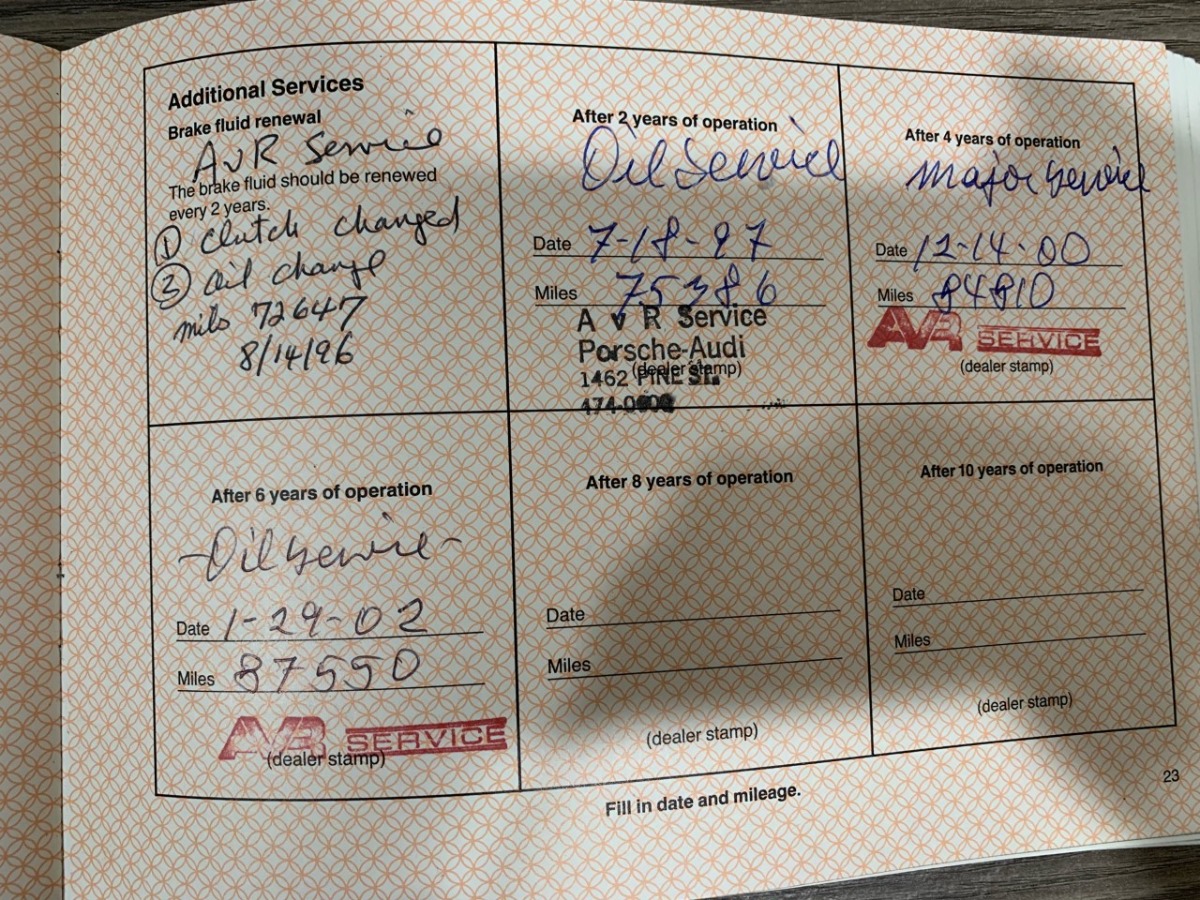 Additional Services
Brake fluid renewal
AVR Service
The brake fluid should be renewed
every 2 years.
① Clutch changed
② oil change
mils 72647
8/14/96
After 2 years of operation
Oil Service
Date 7-18-97
Miles 75386
A v R Service
Porsche-Audi
(dealer stamp)
1462 PINE ST.
After 4 years of operation
Major Service
Date 12-14-00
Miles 84810
AVR SERVICE
(dealer stamp)
After 6 years of operation
-Oil Service-
Date 1-29-02
Miles 87550
AVR SERVICE
(dealer stamp)
After 8 years of operation
Date
Miles
(dealer stamp)
After 10 years of operation
Date
Miles
(dealer stamp)
Fill in date and mileage.
23